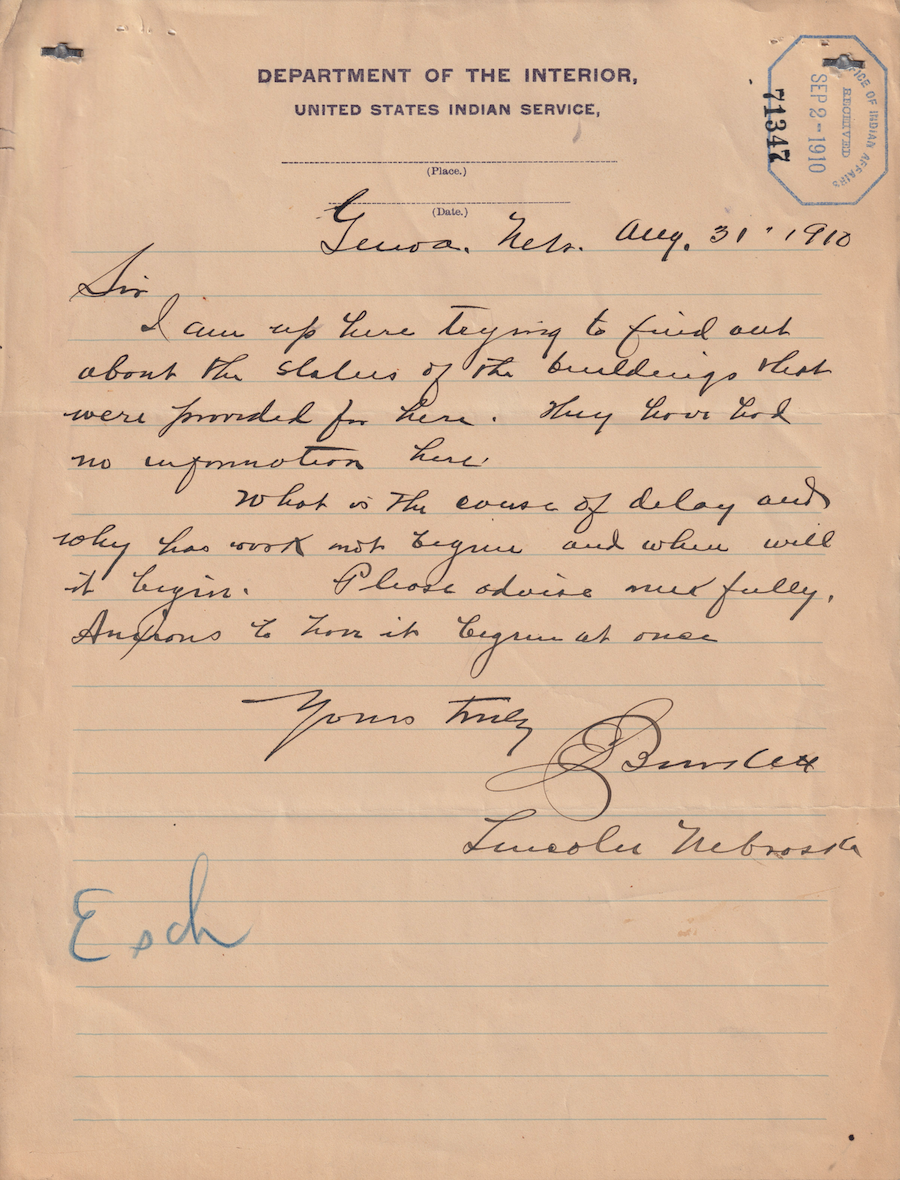 DEPARTMENT OF THE INTERIOR,
UNITED STATES INDIAN SERVICE,
(Place.)
(Date.)
OFFICE OF INDIAN AFFAIRS
RECEIVED
SEP 2-1910
71347
Genoa. Nebr. Aug. 31" 1910
Sir
I am up here trying to find out
about the status of the buildings that
were provided for here. They have had
no information here.
What is the cause of delay and
why has work not begun and when will
it begin. Please advise me fully.
Anxious to have it begun at once
Yours truly
Burkett
Lincoln Nebraska
Esch